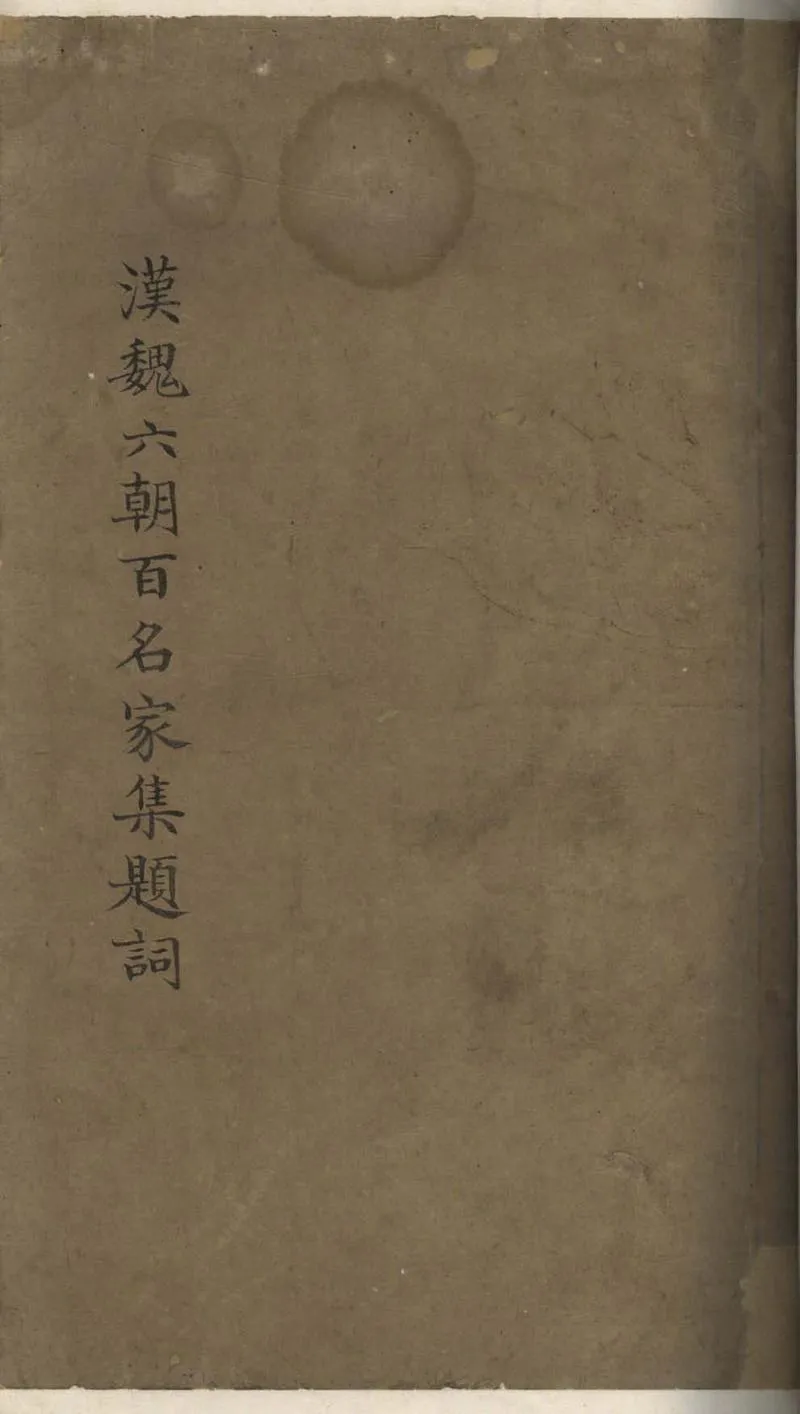 漢魏六朝百名家集題詞